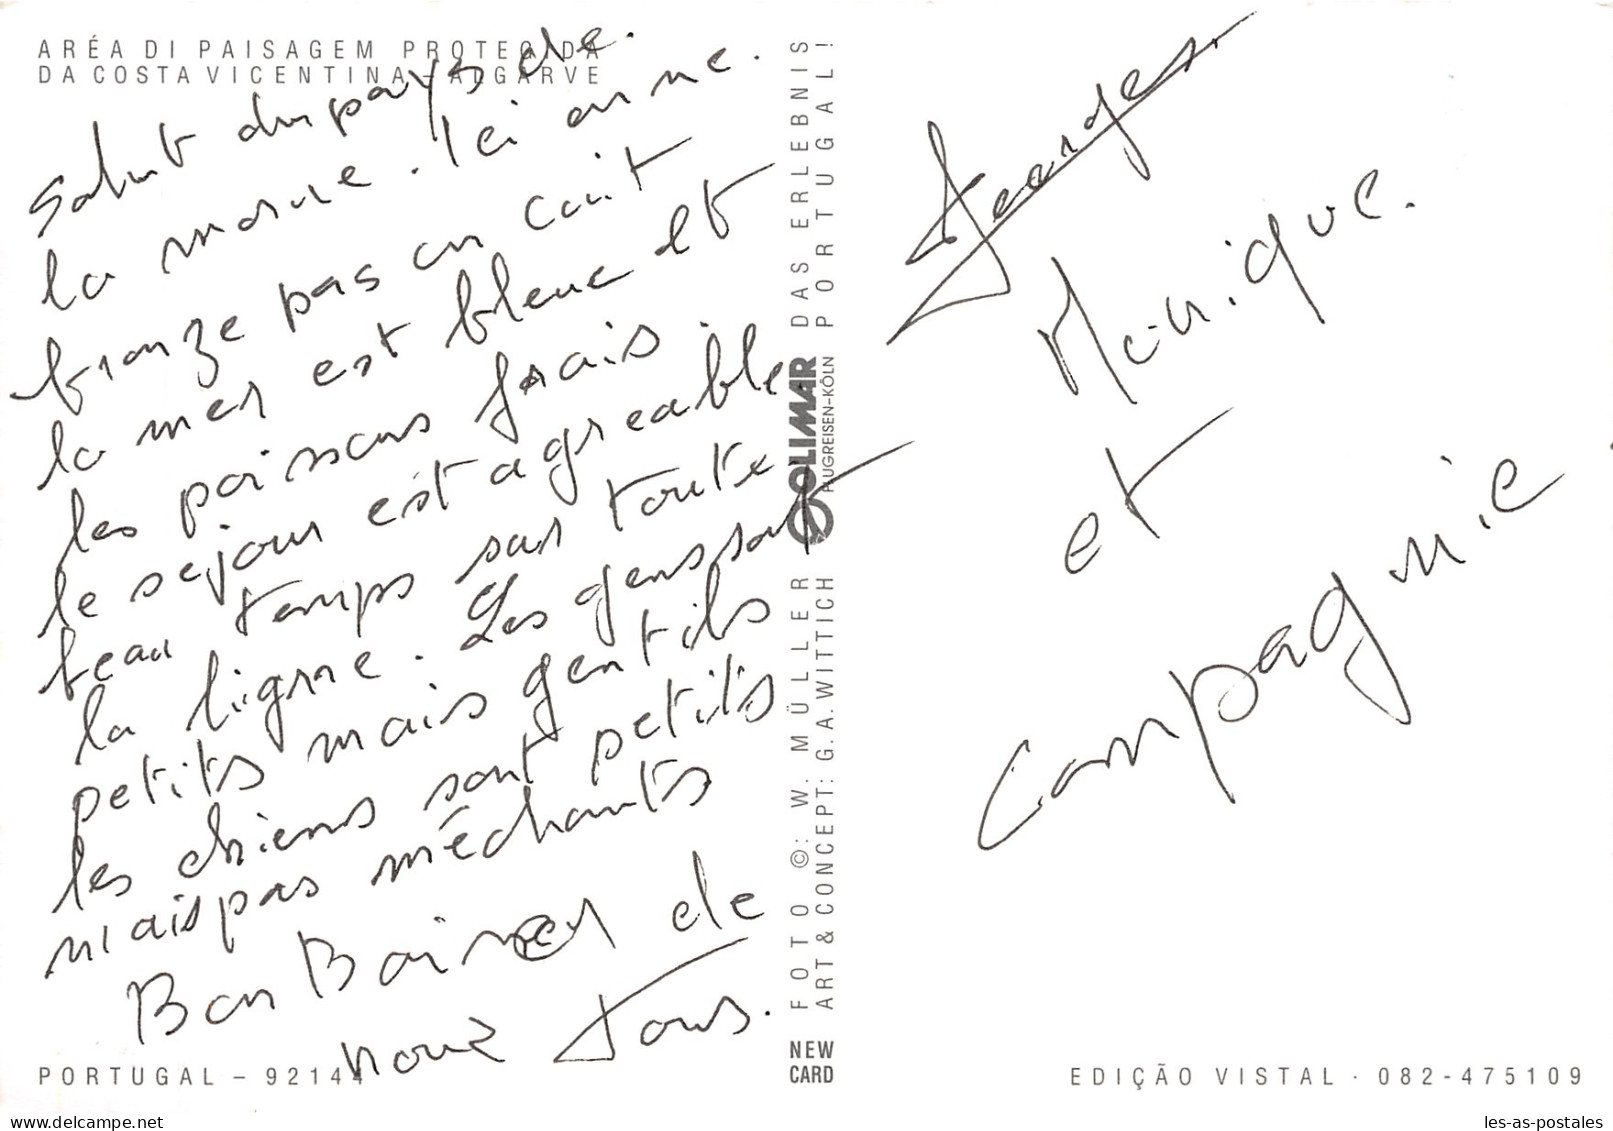 ARÉA DI PAISAGEM PROTEGIDA
DA COSTA VICENTINA - ALGARVE
Salut du pays de
la morue. Ici on ne
bronze pas on cuit
la mer est bleue et
les poissons frais.
le sejour est agreable
beau temps sur toute
la ligne. Les gens sont
petits mais gentils
les chiens sont petits
mais pas méchants
Bon Baiser de
nous Tous.
PORTUGAL – 92144
DAS ERLEBNIS
PORTUGAL!
OLIMAR
FLUGREISEN-KÖLN
FOTO ©: W. MÜLLER
ART & CONCEPT: G.A. WITTICH
NEW
CARD
Georges
Monique.
et
Compagnie
EDIÇÃO VISTAL · 082-475109
les-as-postales